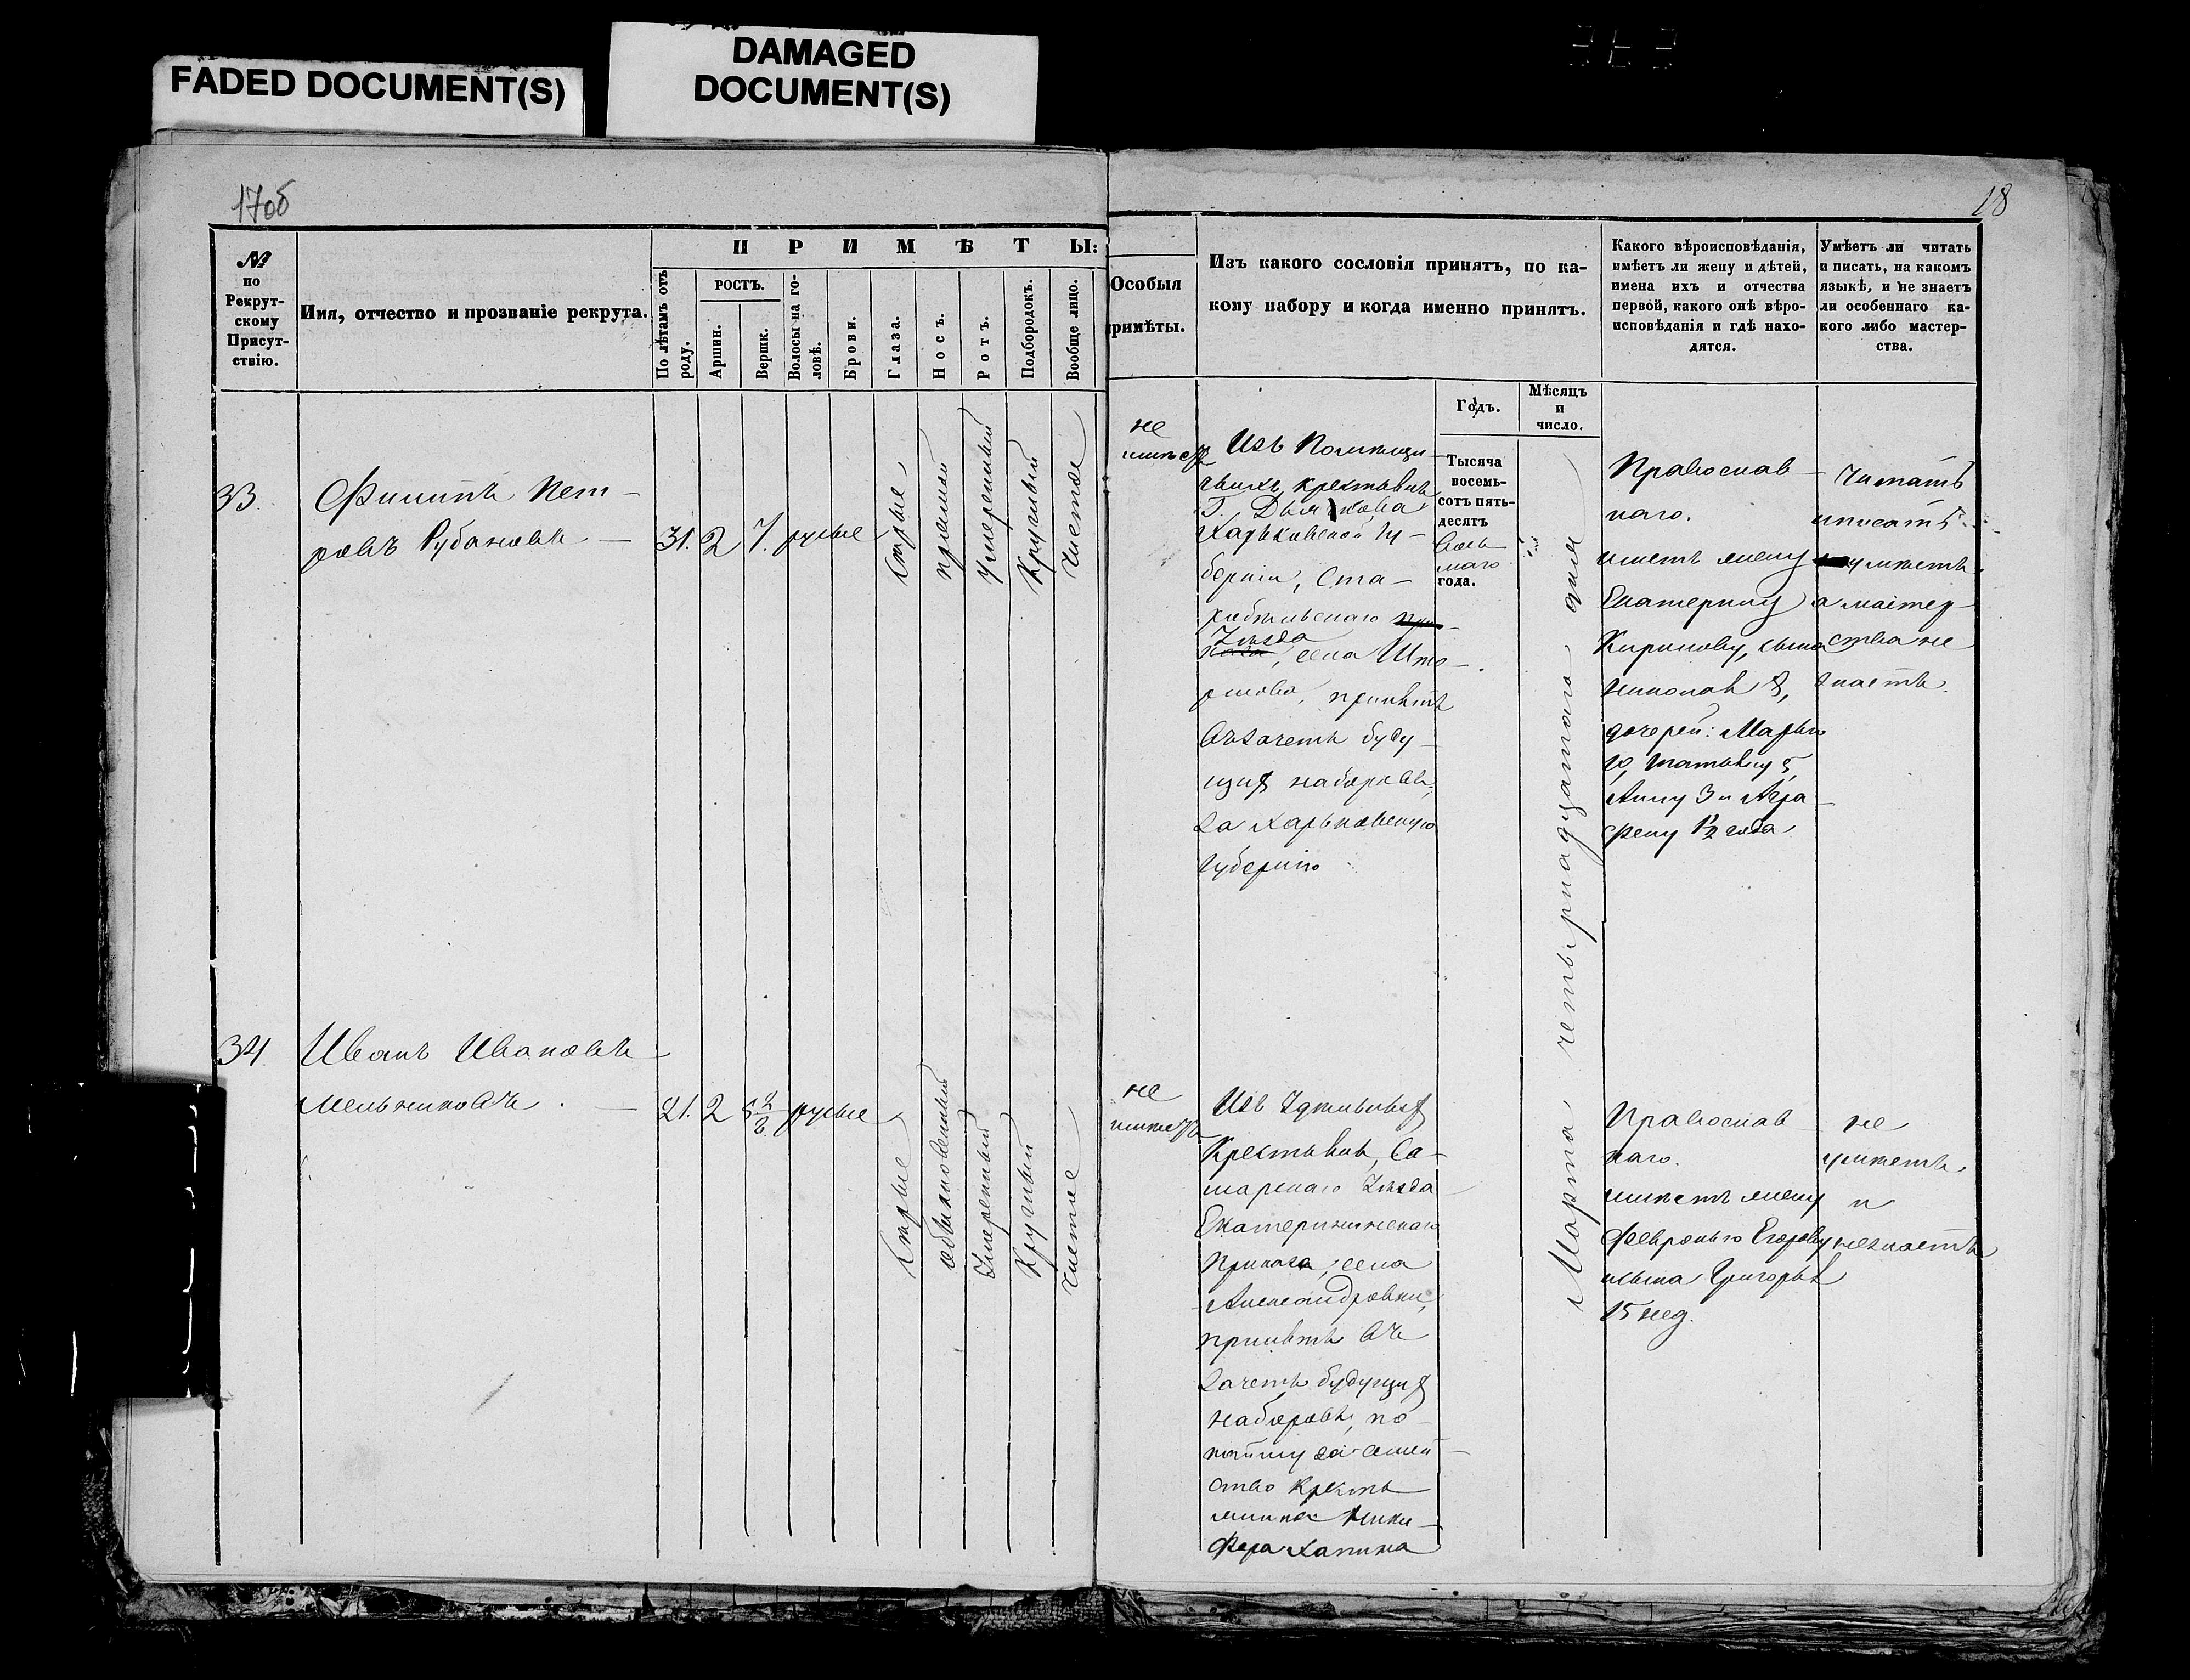 FADED DOCUMENT(S)
DAMAGED
DOCUMENT(S)
17об
18
№
по
Рекрут-
скому
Присут-
ствію.
Имя, отчество и прозваніе рекрута.
П Р И М Ѣ Т Ы:
По лѣтамъ отъ
роду.
РОСТЪ.
Аршин.
Вершк.
Волосы на го-
ловѣ.
Брови.
Глаза.
Носъ.
Ротъ.
Подбородокъ.
Вообще лицо.
Особыя
примѣты.
Изъ какого сословія принятъ, по ка-
кому набору и когда именно принятъ.
Годъ.
Мѣсяцъ
и
число.
Какого вѣроисповѣданія,
имѣетъ ли жену и дѣтей,
имена ихъ и отчества
первой, какого онѣ вѣро-
исповѣданія и гдѣ нахо-
дятся.
Умѣетъ ли читать
и писать, на какомъ
языкѣ, и не знаетъ
ли особеннаго ка-
кого либо мастер-
ства.
33.
Филипъ Пет-
ровъ Рубановъ
31. 2 7. русые
сѣрые
прямой
умеренный
круглый
чистое
не
имѣетъ
Изъ Помѣщи-
чьихъ крестьянъ
Г.
Харьковской Гу-
берніи, Ста-
робѣльскаго
Уѣзда
села Што-
рмова, принятъ
въ зачетъ буду-
щихъ наборовъ,
за Харьковскую
Губернію
Тысяча
восемь-
сотъ пять-
десятъ
восьмаго
года.
Марта четырнадцатаго дня
Православ-
наго.
имеетъ жену
Екатерину
Кирилову, сына
Николая 8,
дочерей: Марью
10, Татьяну 5,
Анну 3 и Агра-
фену 1½ года.
читать
и писать
умѣетъ
а мастер-
ства не
знаетъ.
34.
Иванъ Ивановъ
Мельниковъ.
21. 2 5 2/8 русые
сѣрые
обыкновенный
умеренный
круглый
чистое
не
имѣетъ
Изъ Удѣльныхъ
Крестьянъ, Са-
марскаго Уѣзда
Екатерининскаго
Приказа, села
Александровки,
принятъ въ
зачетъ будущихъ
наборовъ, по
найму за семей-
ство Кресть-
янина Ники-
фора Хапина
Православ-
наго.
имѣетъ жену
Февронью Егорову
и сына Григорья
15 нед.
не
умѣетъ
и
не знаетъ